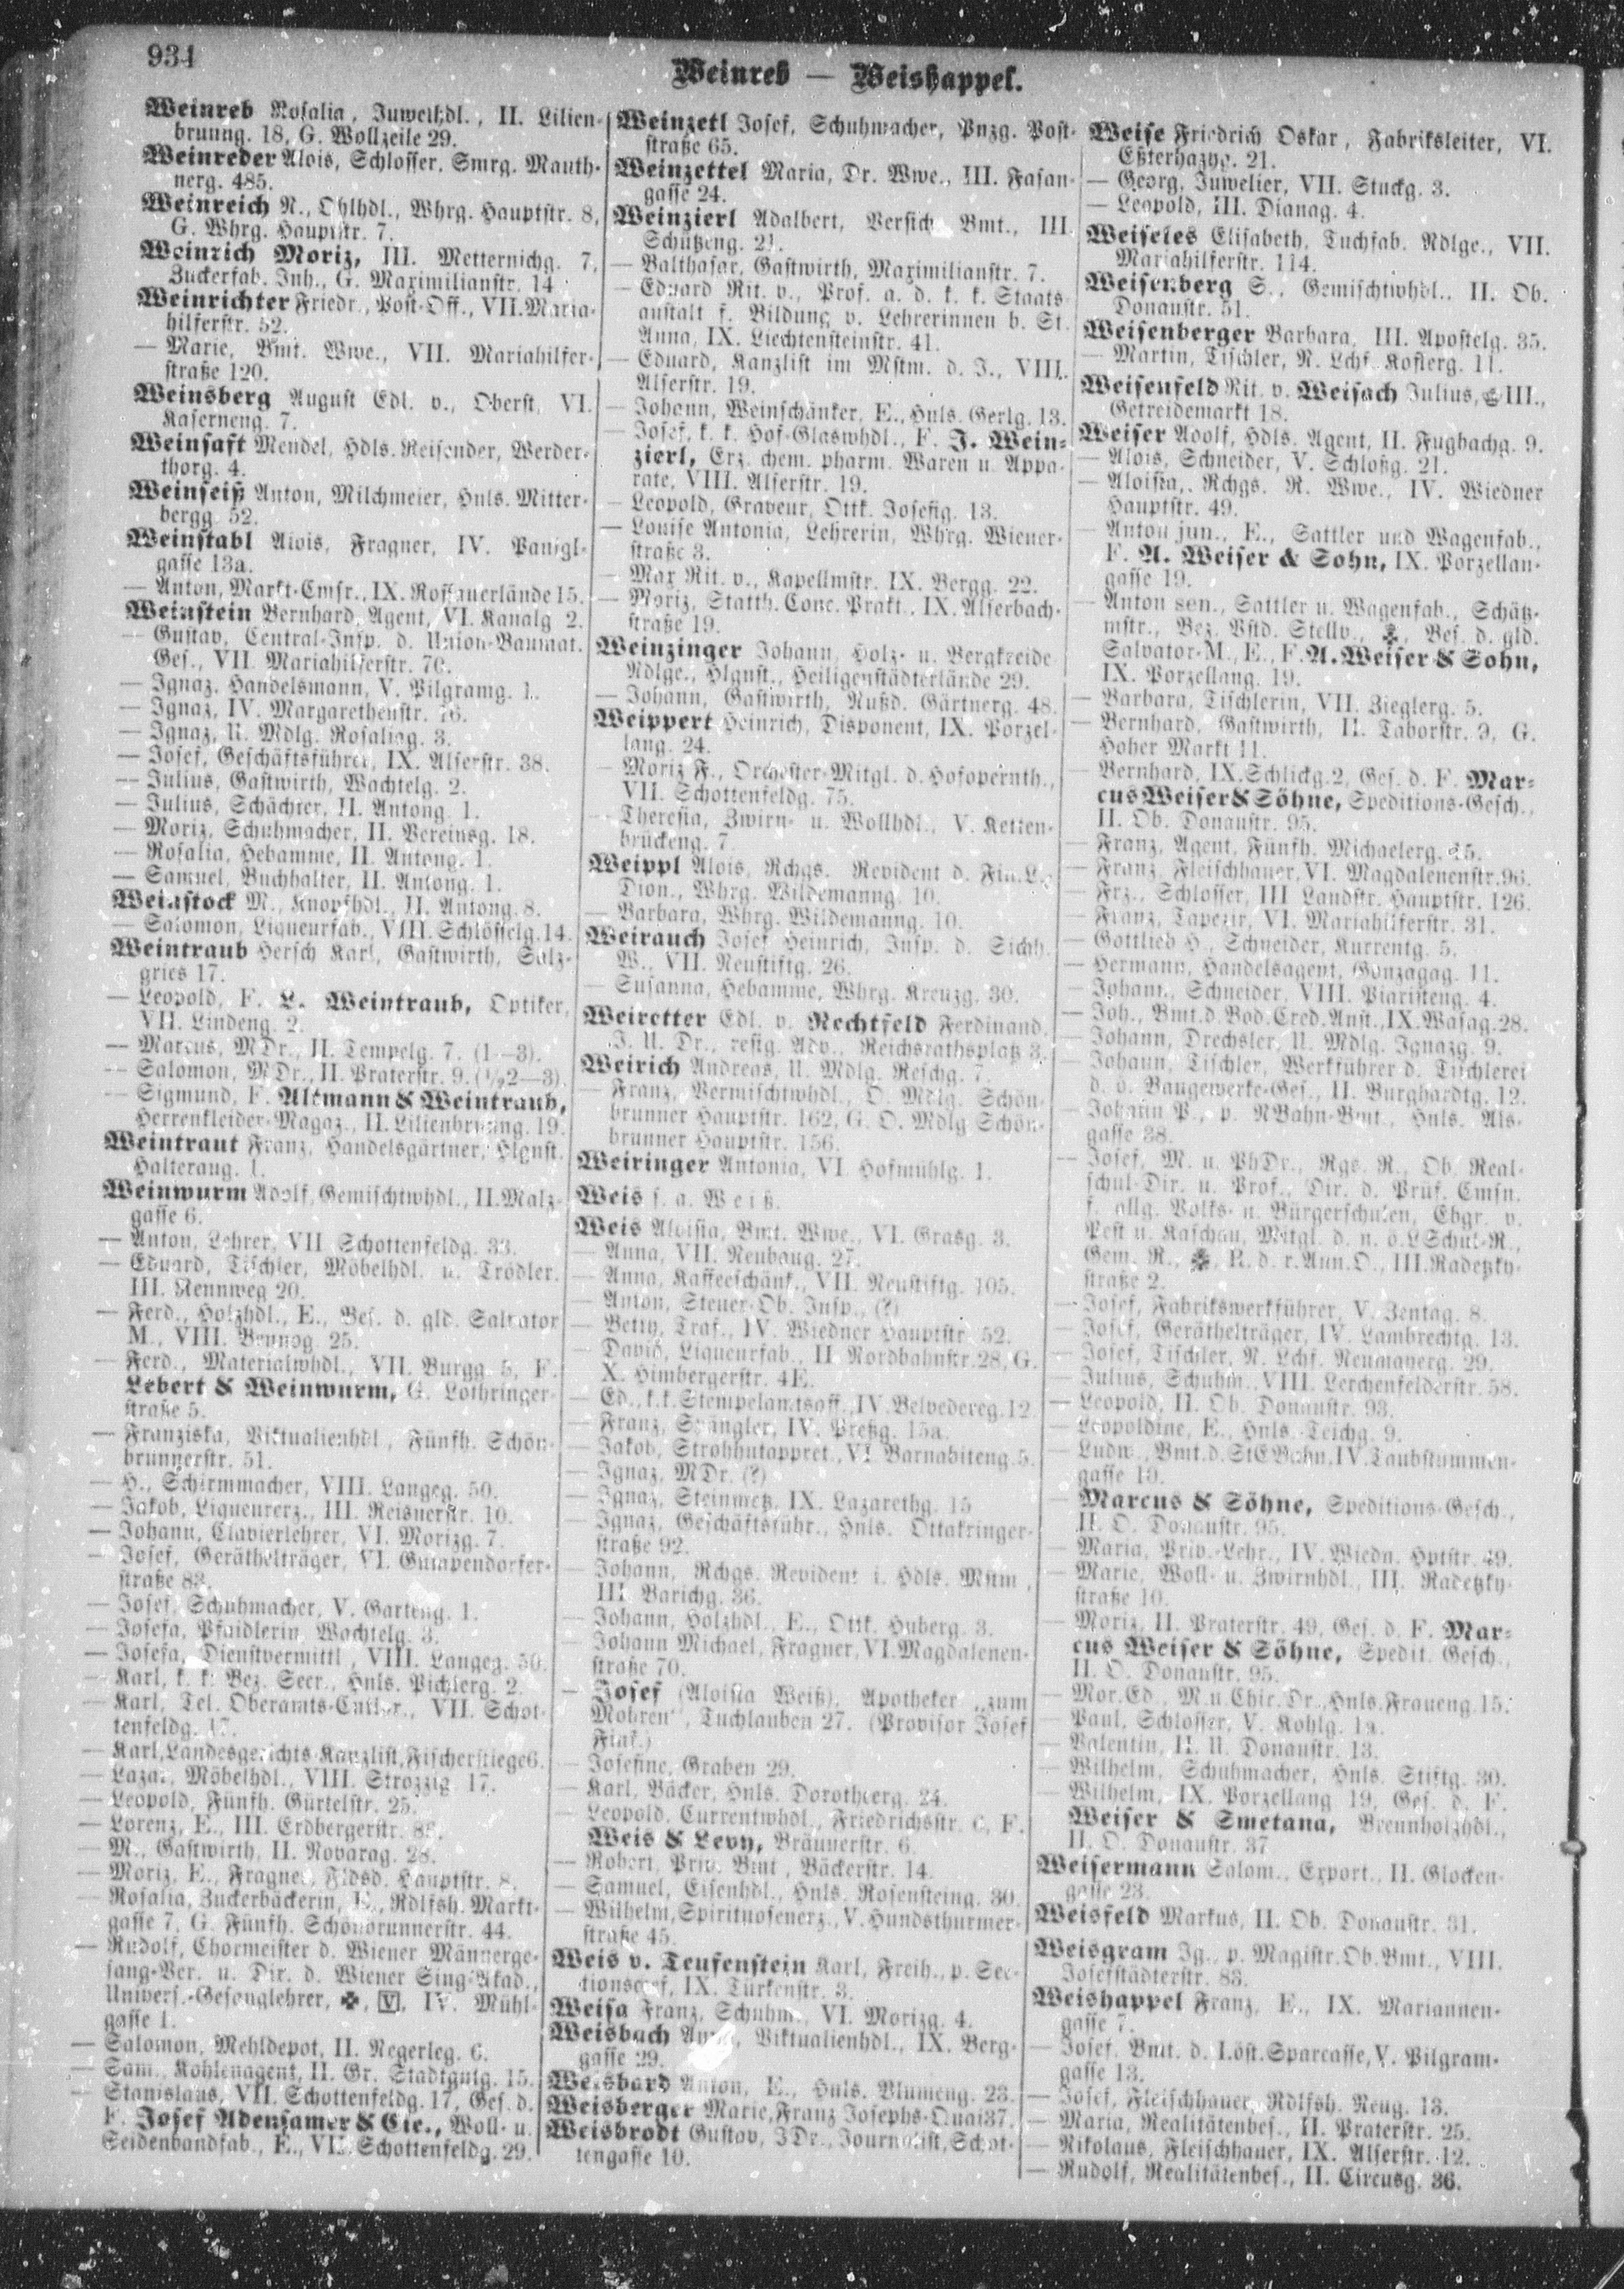 934
Weinreb — Weishappel.
Weinreb Rosalia, Juwelhdl., II. Lilien-
brunng. 18, G. Wollzeile 29.
Weinreder Alois, Schlosser, Smrg. Mauth-
nerg. 485.
Weinreich N., Ohlhdl., Whrg. Hauptstr. 8,
G. Whrg. Hauptstr. 7.
Weinrich Moriz, III. Metternichg. 7,
Zuckerfab. Inh., G. Maximilianstr. 14.
Weinrichter Friedr., Post-Off., VII. Maria-
hilferstr. 52.
— Marie, Bmt. Wwe., VII. Mariahilfer-
straße 120.
Weinsberg August Edl. v., Oberst, VI.
Kaserneng. 7.
Weinsaft Mendel, Hdls. Reisender, Werder-
thorg. 4.
Weinseiß Anton, Milchmeier, Hnls. Mitter-
bergg. 52.
Weinstabl Alois, Fragner, IV. Panigl-
gasse 13a.
— Anton, Markt-Cmsr., IX. Rossauerlände 15.
Weinstein Bernhard, Agent, VI. Kanalg. 2.
— Gustav, Central-Insp. d. Union-Baumat.
Ges., VII. Mariahilferstr. 70.
— Ignaz, Handelsmann, V. Pilgramg. 1.
— Ignaz, IV. Margarethenstr. 76.
— Ignaz, U. Mdlg. Rosaliag. 3.
— Josef, Geschäftsführer, IX. Alserstr. 38.
— Julius, Gastwirth, Wachtelg. 2.
— Julius, Schächter, II. Antong. 1.
— Moriz, Schuhmacher, II. Vereinsg. 18.
— Rosalia, Hebamme, II. Antong. 1.
— Samuel, Buchhalter, II. Antong. 1.
Weinstock M., Knopfhdl., II. Antong. 8.
— Salomon, Liqueurfab., VIII. Schlösselg. 14.
Weintraub Hersch Karl, Gastwirth, Salz-
gries 17.
— Leopold, F. L. Weintraub, Optiker,
VII. Lindeng. 2.
— Marcus, MDr., II. Tempelg. 7. (1—3).
— Salomon, MDr., II. Praterstr. 9. (½2—3).
— Sigmund, F. Altmann & Weintraub,
Herrenkleider-Magaz., II. Lilienbrunng. 19.
Weintraut Franz, Handelsgärtner, Hlgnst.
Halteraug. 1.
Weinwurm Adolf, Gemischtwhdl., II. Malz-
gasse 6.
— Anton, Lehrer, VII. Schottenfeldg. 33.
— Eduard, Tischler, Möbelhdl. u. Trödler,
III. Rennweg 20.
— Ferd., Holzhdl., E., Bes. d. gld. Salvator
M., VIII. Bennog. 25.
— Ferd., Materialwhdl., VII. Burgg. 5, F.
Lebert & Weinwurm, G. Lothringer-
straße 5.
— Franziska, Viktualienhdl., Fünfh. Schön-
brunnerstr. 51.
— H., Schirmmacher, VIII. Langeg. 50.
— Jakob, Liqueurerz., III. Reisnerstr. 10.
— Johann, Clavierlehrer, VI. Morizg. 7.
— Josef, Geräthelträger, VI. Gumpendorfer-
straße 83.
— Josef, Schuhmacher, V. Garteng. 1.
— Josefa, Pfaidlerin, Wachtelg. 3.
— Josefa, Dienstvermittl., VIII. Langeg. 50.
— Karl, k. k. Bez. Secr., Hnls. Pichlerg. 2.
— Karl, Tel. Oberamts- VII. Schot-
tenfeldg. 17.
— Karl, Landesgerichts-Kanzlist, Fischerstiege 6.
— Lazar, Möbelhdl., VIII. Strozzig. 17.
— Leopold, Fünfh. Gürtelstr. 25.
— Lorenz, E., III. Erdbergerstr.
— M., Gastwirth, II. Novarag. 28.
— Moriz, E., Fragner, Fldsd. Hauptstr. 8.
— Rosalia, Zuckerbäckerin, E., Rdlfsh. Markt-
gasse 7, G. Fünfh. Schönbrunnerstr. 44.
— Rudolf, Chormeister d. Wiener Männerge-
sang-Ver. u. Dir. d. Wiener Sing-Akad.,
Univers.-Gesanglehrer, ✠, V, IV. Mühl-
gasse 1.
— Salomon, Mehldepot, II. Negerleg. 6.
— Sam., Kohlenagent, II. Gr. Stadtgutg. 15.
— Stanislaus, VII. Schottenfeldg. 17, Ges. d.
F. Josef Adensamer & Cie., Woll- u.
Seidenbandfab., E., VII. Schottenfeldg. 29.
Weinzetl Josef, Schuhmacher, Pnzg. Post-
straße 65.
Weinzettel Maria, Dr. Wwe., III. Fasan-
gasse 24.
Weinzierl Adalbert, Versich. Bmt., III.
Schützeng. 21.
— Balthasar, Gastwirth, Maximilianstr. 7.
— Eduard Rit. v., Prof. a. d. k. k. Staats-
anstalt f. Bildung v. Lehrerinnen b. St.
Anna, IX. Liechtensteinstr. 41.
— Eduard, Kanzlist im Mstm. d. J., VIII.
Alserstr. 19.
— Johann, Weinschänker, E., Hnls. Gerlg. 13.
— Josef, k. k. Hof-Glaswhdl., F. J. Wein-
zierl, Erz. chem. pharm. Waren u. Appa-
rate, VIII. Alserstr. 19.
— Leopold, Graveur, Ottk. Josefig. 13.
— Louise Antonia, Lehrerin, Whrg. Wiener-
straße 3.
— Max Rit. v., Kapellmstr. IX. Bergg. 22.
— Moriz, Statth. Conc. Prakt., IX. Alserbach-
straße 19.
Weinzinger Johann, Holz- u. Bergkreide
Ndlge., Hlgnst., Heiligenstädterlände 29.
— Johann, Gastwirth, Nußd. Gärtnerg. 48.
Weippert Heinrich, Disponent, IX. Porzel-
lang. 24.
— Moriz F., Orchester-Mitgl. d. Hofopernth.,
VII. Schottenfeldg. 75.
— Theresia, Zwirn- u. Wollhdl., V. Ketten-
brückeng. 7.
Weippl Alois, Rchgs. Revident d. Fin. L.
Dion., Whrg. Wildemanng. 10.
— Barbara, Whrg. Wildemanng. 10.
Weirauch Josef Heinrich, Insp. d. Sichh.
W., VII. Neustiftg. 26.
— Susanna, Hebamme, Whrg. Kreuzg. 30.
Weiretter Edl. v. Rechtfeld Ferdinand,
J. U. Dr., resig. Adv., Reichsrathsplatz 3.
Weirich Andreas, U. Mdlg. Reschg. 7.
— Franz, Vermischtwhdl., O. Mdlg. Schön-
brunner Hauptstr. 162, G. O. Mdlg Schön-
brunner Hauptstr. 156.
Weiringer Antonia, VI. Hofmühlg. 1.
Weis s. a. Weiß.
Weis Aloisia, Bmt. Wwe., VI. Grasg. 3.
— Anna, VII. Neubaug. 27.
— Anna, Kaffeeschänk., VII. Neustiftg. 105.
— Anton, Steuer-Ob. Insp., (?)
— Betty, Traf., IV. Wiedner Hauptstr. 52.
— David, Liqueurfab., II. Nordbahnstr. 28, G.
X. Himbergerstr. 4E.
— Ed., k.k. Stempelamtsoff., IV. Belvedereg. 12.
— Franz, Spängler, IV. Preßg. 15a.
— Jakob, Strohhutappret., VI. Barnabiteng. 5.
— Ignaz, MDr. (?)
— Ignaz, Steinmetz, IX. Lazarethg. 15
— Ignaz, Geschäftsführ., Hnls. Ottakringer-
straße 92.
— Johann, Rchgs. Revident i. Hdls. Mstm.,
III. Barichg. 36.
— Johann, Holzhdl., E., Ottk. Huberg. 3.
— Johann Michael, Fragner, VI. Magdalenen-
straße 70.
— Josef (Aloisia Weiß), Apotheker „zum
Mohren", Tuchlauben 27. (Provisor Josef
Fink.)
— Josefine, Graben 29.
— Karl, Bäcker, Hnls. Dorotheerg. 24.
— Leopold, Currentwhdl., Friedrichsstr. 6, F.
Weis & Levy, Bräunerstr. 6.
— Robert, Priv. Bmt., Bäckerstr. 14.
— Samuel, Eisenhdl., Hnls. Rosensteing. 30.
— Wilhelm, Spirituosenerz., V. Hundsthurmer-
straße 45.
Weis v. Teufenstein Karl, Freih., p. Sec-
tionschef, IX. Türkenstr. 3.
Weisa Franz, Schuhm., VI. Morizg. 4.
Weisbach Viktualienhdl., IX. Berg-
gasse 29.
Weisbard Anton, E., Hnls. Blumeng. 23.
Weisberger Marie, Franz Josephs-Quai 37.
Weisbrodt Gustav, JDr., Journalist, Schot-
tengasse 10.
Weise Friedrich Oskar, Fabriksleiter, VI.
Eßterhazyg. 21.
— Georg, Juwelier, VII. Stuckg. 3.
— Leopold, III. Dianag. 4.
Weiseles Elisabeth, Tuchfab. Ndlge., VII.
Mariahilferstr. 114.
Weisenberg S., Gemischtwhdl., II. Ob.
Donaustr. 51.
Weisenberger Barbara, III. Apostelg. 35.
— Martin, Tischler, N. Lchf. Kosterg. 11.
Weisenfeld Rit. v. Weisach Julius, III.,
Getreidemarkt 18.
Weiser Adolf, Hdls. Agent, II. Fugbachg. 9.
— Alois, Schneider, V. Schloßg. 21.
— Aloisia, Rchgs. R. Wwe., IV. Wiedner
Hauptstr. 49.
— Anton jun., E., Sattler und Wagenfab.,
F. A. Weiser & Sohn, IX. Porzellan-
gasse 19.
— Anton sen., Sattler u. Wagenfab., Schätz-
mstr., Bez. Vstd. Stellv., ✠, Bes. d. gld.
Salvator-M., E., F. A. Weiser & Sohn,
IX. Porzellang. 19.
— Barbara, Tischlerin, VII. Zieglerg. 5.
— Bernhard, Gastwirth, II. Taborstr. 9, G.
Hoher Markt 11.
— Bernhard, IX. Schlickg. 2, Ges. d. F. Mar-
cus Weiser & Söhne, Speditions-Gesch.,
II. Ob. Donaustr. 95.
— Franz, Agent, Fünfh. Michaelerg.
— Franz, Fleischhauer, VI. Magdalenenstr. 96.
— Frz., Schlosser, III Landstr. Hauptstr. 126.
— Franz, Tapezir, VI. Mariahilferstr. 31.
— Gottlieb H., Schneider, Kurrentg. 5.
— Hermann, Handelsagent, Gonzagag. 11.
— Johann, Schneider, VIII. Piaristeng. 4.
— Joh., Bmt. d. Bod. Cred. Anst., IX. Wasag. 28.
— Johann, Drechsler, U. Mdlg. Ignazg. 9.
— Johann, Tischler, Werkführer d. Tischlerei
d. ö. Baugewerke-Ges., II. Burghardtg. 12.
— Johann P., p. NBahn-Bmt., Hnls. Als-
gasse 38.
— Josef, M. u. PhDr., Rgs. R., Ob. Real-
schul-Dir. u. Prof., Dir. d. Prüf. Cmsn.
f. allg. Volks- u. Bürgerschulen, Ehgr. v.
Pest u. Kaschau, Mitgl. d. n. ö. LSchul-R.,
Gem. R., ✠, R. d. r. Ann. O., III. Radetzky-
straße 2.
— Josef, Fabrikswerkführer, V. Zentag. 8.
— Josef, Geräthelträger, IV. Lambrechtg. 13.
— Josef, Tischler, N. Lchf. Neumayerg. 29.
— Julius, Schuhm., VIII. Lerchenfelderstr. 58.
— Leopold, II. Ob. Donaustr. 93.
— Leopoldine, E., Hnls. Teichg. 9.
— Ludw., Bmt. d. StEBahn, IV. Taubstummen-
gasse 10.
— Marcus & Söhne, Speditions-Gesch.,
II. O. Donaustr. 95.
— Maria, Priv.-Lehr., IV. Wiedn. Hptstr. 49.
— Marie, Woll- u. Zwirnhdl., III. Radetzky-
straße 10.
— Moriz, II. Praterstr. 49, Ges. d. F. Mar-
cus Weiser & Söhne, Spedit. Gesch.,
II. O. Donaustr. 95.
— Mor. Ed., M. u. Chir. Dr., Hnls. Fraueng. 15.
— Paul, Schlosser, V. Kohlg. 1a.
— Valentin, II. U. Donaustr. 13.
— Wilhelm, Schuhmacher, Hnls. Stiftg. 30.
— Wilhelm, IX. Porzellang 19, Ges. d. F.
Weiser & Smetana, Brennholzhdl.,
II. O. Donaustr. 37
Weisermann Salom., Export., II. Glocken-
gasse 23.
Weisfeld Markus, II. Ob. Donaustr. 31.
Weisgram Ig., p. Magistr. Ob. Bmt., VIII.
Josefstädterstr. 83.
Weishappel Franz, E., IX. Mariannen-
gasse 7.
— Josef, Bmt. d. I. öst. Sparcasse, V. Pilgram-
gasse 13.
— Josef, Fleischhauer, Rdlfsh. Neug. 13.
— Maria, Realitätenbes., II. Praterstr. 25.
— Nikolaus, Fleischhauer, IX. Alserstr. 12.
— Rudolf, Realitätenbes., II. Circusg. 36.